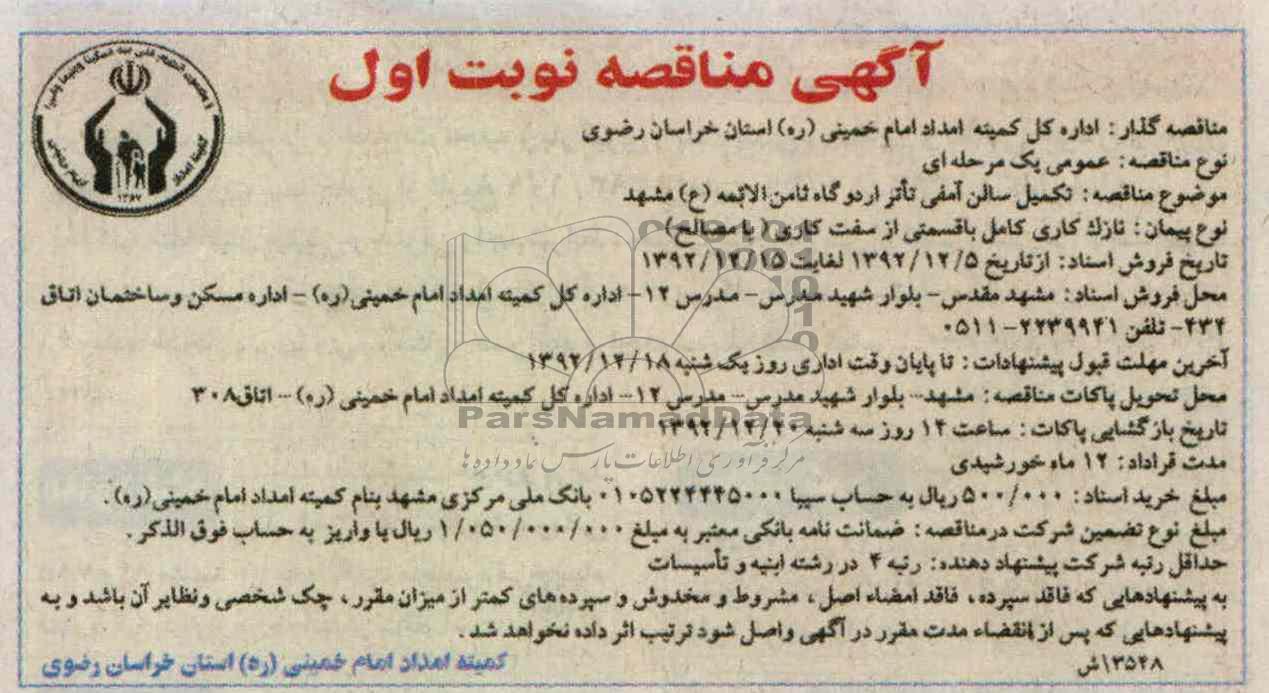 آگهی مناقصه نوبت اول
مناقصه گذار: اداره کل کمیته امداد امام خمینی (ره) استان خراسان رضوی
نوع مناقصه: عمومی یک مرحله ای
موضوع مناقصه: تکمیل سالن آمفی تأتر اردوگاه ثامن الائمه (ع) مشهد
نوع پیمان: نازك کاری کامل باقسمتی از سفت کاری (با مصالح)
تاریخ فروش اسناد: ازتاریخ ۱۳۹۲/۱۲/۵ لغایت ۱۳۹۲/۱۲/۱۵
محل فروش اسناد: مشهد مقدس- بلوار شهید مدرس- مدرس ۱۲- اداره کل کمیته امداد امام خمینی(ره) - اداره مسکن وساختمان اتاق
۴۳۴- تلفن ۲۲۳۹۹۴۱-۰۵۱۱
آخرین مهلت قبول پیشنهادات: تا پایان وقت اداری روز یک شنبه ۱۳۹۲/۱۲/۱۸
محل تحویل پاکات مناقصه: مشهد- بلوار شهید مدرس- مدرس ۱۲- اداره کل کمیته امداد امام خمینی (ره) - اتاق۳۰۸
تاریخ بازگشایی پاکات: ساعت ۱۲ روز سه شنبه ۱۳۹۲/۱۲/۲۰
ParsNamadData
مرکز فرآوری اطلاعات پارس نماد داده ها
مدت قراداد: ۱۲ ماه خورشیدی
مبلغ خرید اسناد: ۵۰۰/۰۰۰ ریال به حساب سیبا ۰۱۰۵۲۲۴۴۴۵۰۰۰ بانک ملی مرکزی مشهد بنام کمیته امداد امام خمینی(ره).
مبلغ نوع تضمین شرکت درمناقصه: ضمانت نامه بانکی معتبر به مبلغ ۱/۰۵۰/۰۰۰/۰۰۰ ریال یا واریز به حساب فوق الذکر.
حداقل رتبه شرکت پیشنهاد دهنده: رتبه ۴ در رشته ابنیه و تأسیسات
به پیشنهادهایی که فاقد سپرده، فاقد امضاء اصل، مشروط و مخدوش و سپرده های کمتر از میزان مقرر، چک شخصی ونظایر آن باشد و به
پیشنهادهایی که پس از انقضاء مدت مقرر در آگهی واصل شود ترتیب اثر داده نخواهد شد.
۱۳۵۴۸/ش
کمیته امداد امام خمینی (ره) استان خراسان رضوی